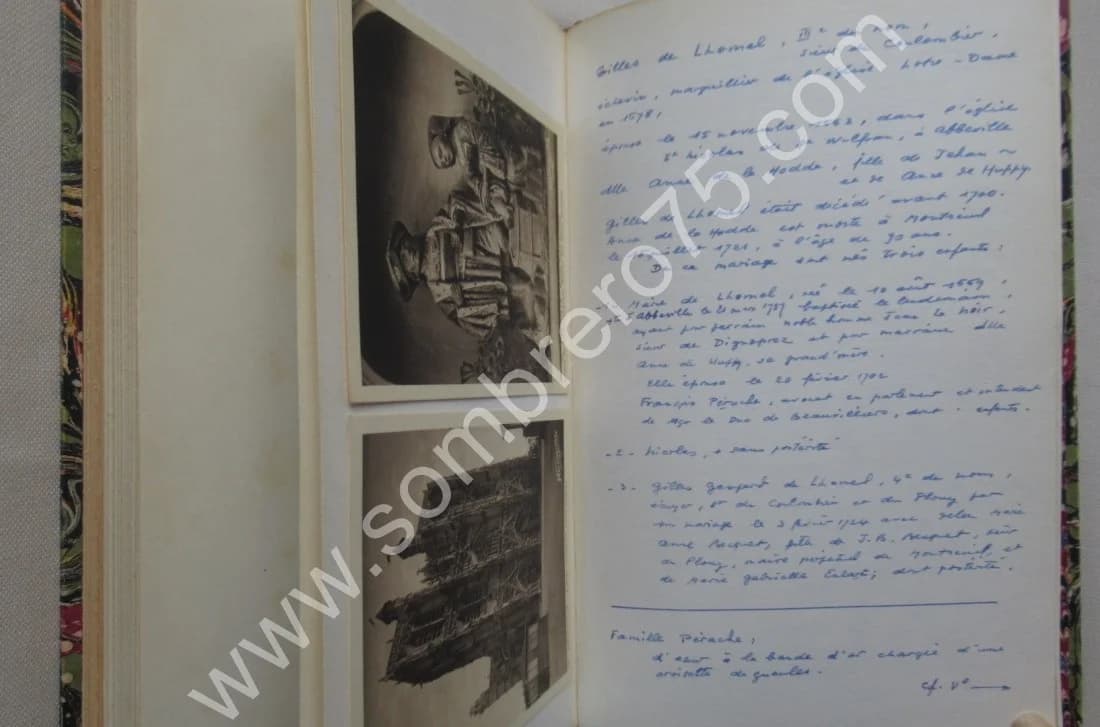 Gilles de Lhomel, IIIe de nom,
sieur de Colombier,
échevin, marguillier de l'église Notre-Dame
en 1678,
épouse le 15 novembre, dans l'église
St Nicolas de St Wulfran, à Abbeville
dlle Anne de la Hodde, fille de Jehan
et de Anne de Huppy.
Gilles de Lhomel était décédé avant 1700.
Anne de la Hodde est morte à Montreuil
le juillet 1721, à l'âge de ans.
De ce mariage sont nés trois enfants :
Marie de Lhomel, née le 10 août 1669,
+ à Abbeville le 21 mars 1757 baptisée le lendemain,
ayant pour parrain noble homme Jean le Noir,
sieur de Dignoprez et pour marraine dlle
Anne de Huppy, sa grand'mère.
Elle épousa le 20 février 1702
François Pérache, avocat en parlement et intendant
de Mgr le Duc de Beauvilliers, dont enfants.
- 2 - Nicolas, + sans postérité
- 3 - Gilles Gaspard de Lhomel, 4e du nom,
écuyer, sr du Colombier et du Plouy par
son mariage le 3 février 1724 avec delle Marie
Anne Becquet, fille de J.B. Becquet, sieur
du Plouy, maire royal de Montreuil, et
de Marie Gabrielle Enlart ; dont postérité.
Famille Pérache,
d'azur à la bande d'or chargée d'une
croisette de gueules.
Cf. Vo
www.sombrero75.com